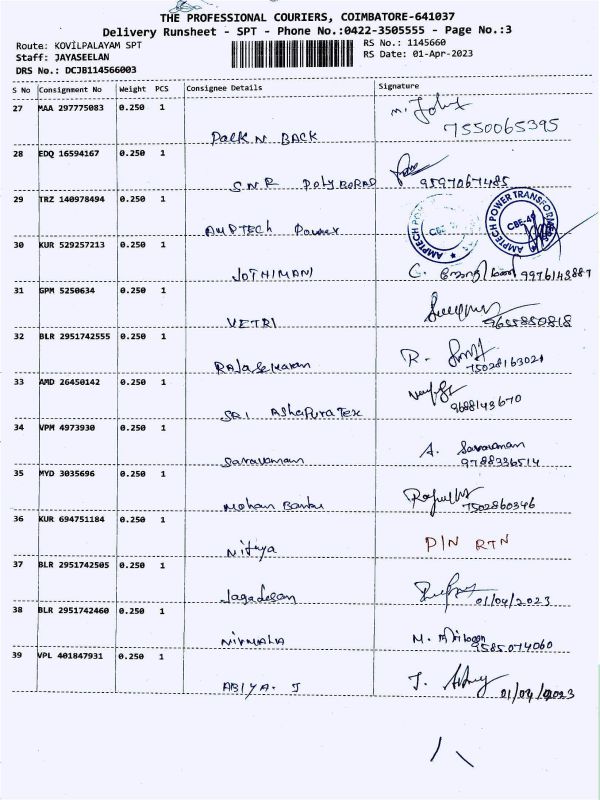 THE PROFESSIONAL COURIERS, COIMBATORE-641037
Delivery Runsheet - SPT - Phone No.:0422-3505555 - Page No.:3
Route: KOVILPALAYAM SPT
RS No.: 1145660
Staff: JAYASEELAN
RS Date: 01-Apr-2023
DRS No.: DCJB114566003
S No Consignment No Weight PCS Consignee Details Signature
27 MAA 297775083 0.250 1
Pack N BACK 7550065395
28 EDQ 16594167 0.250 1
S.N.R 9597067485
29 TRZ 140978494 0.250 1
AMPTECH Power AMPTECH POWER TRANSFORMERS CBE-49
30 KUR 529257213 0.250 1
JOTHIMANI 9976143887
31 GPM 5250634 0.250 1
VETRI 9655850818
32 BLR 2951742555 0.250 1
Rajasekaran R. 7502816302
33 AMD 26450142 0.250 1
SRI Ashapura Tex 9688143670
34 VPM 4973930 0.250 1
Saravanan A. Saravanan
9788336514
35 MYD 3035696 0.250 1
Mohan 7502860346
36 KUR 694751184 0.250 1
Nithya P/N RTN
37 BLR 2951742505 0.250 1
Jagadesan 01/04/2023
38 BLR 2951742460 0.250 1
NIRMALA M. 9585074060
39 VPL 401847931 0.250 1
ABIYA. J J. 01/04/2023